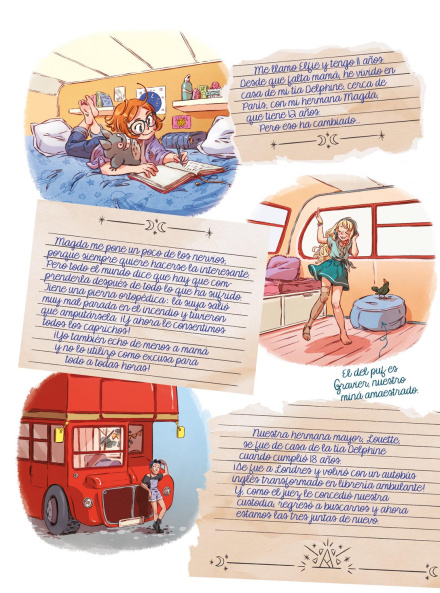 Me llamo Elfie y tengo 11 años.
Desde que falta mamá, he vivido en
casa de mi tía Delphine, cerca de
París, con mi hermana Magda,
que tiene 13 años.
Pero eso ha cambiado.
Magda me pone un poco de los nervios,
porque siempre quiere hacerse la interesante.
Pero todo el mundo dice que hay que com-
prenderla después de todo lo que ha sufrido.
Tiene una pierna ortopédica: la suya salió
muy mal parada en el incendio y tuvieron
que amputársela. ¡Y ahora le consentimos
todos los caprichos!
¡Yo también echo de menos a mamá
y no lo utilizo como excusa para
todo a todas horas!
El del puf es
Gravier, nuestro
miná amaestrado.
Nuestra hermana mayor, Louette,
se fue de casa de la tía Delphine
cuando cumplió 18 años.
¡Se fue a Londres y volvió con un autobús
inglés transformado en librería ambulante!
Y, como el juez le concedió nuestra
custodia, regresó a buscarnos y ahora
estamos las tres juntas de nuevo.